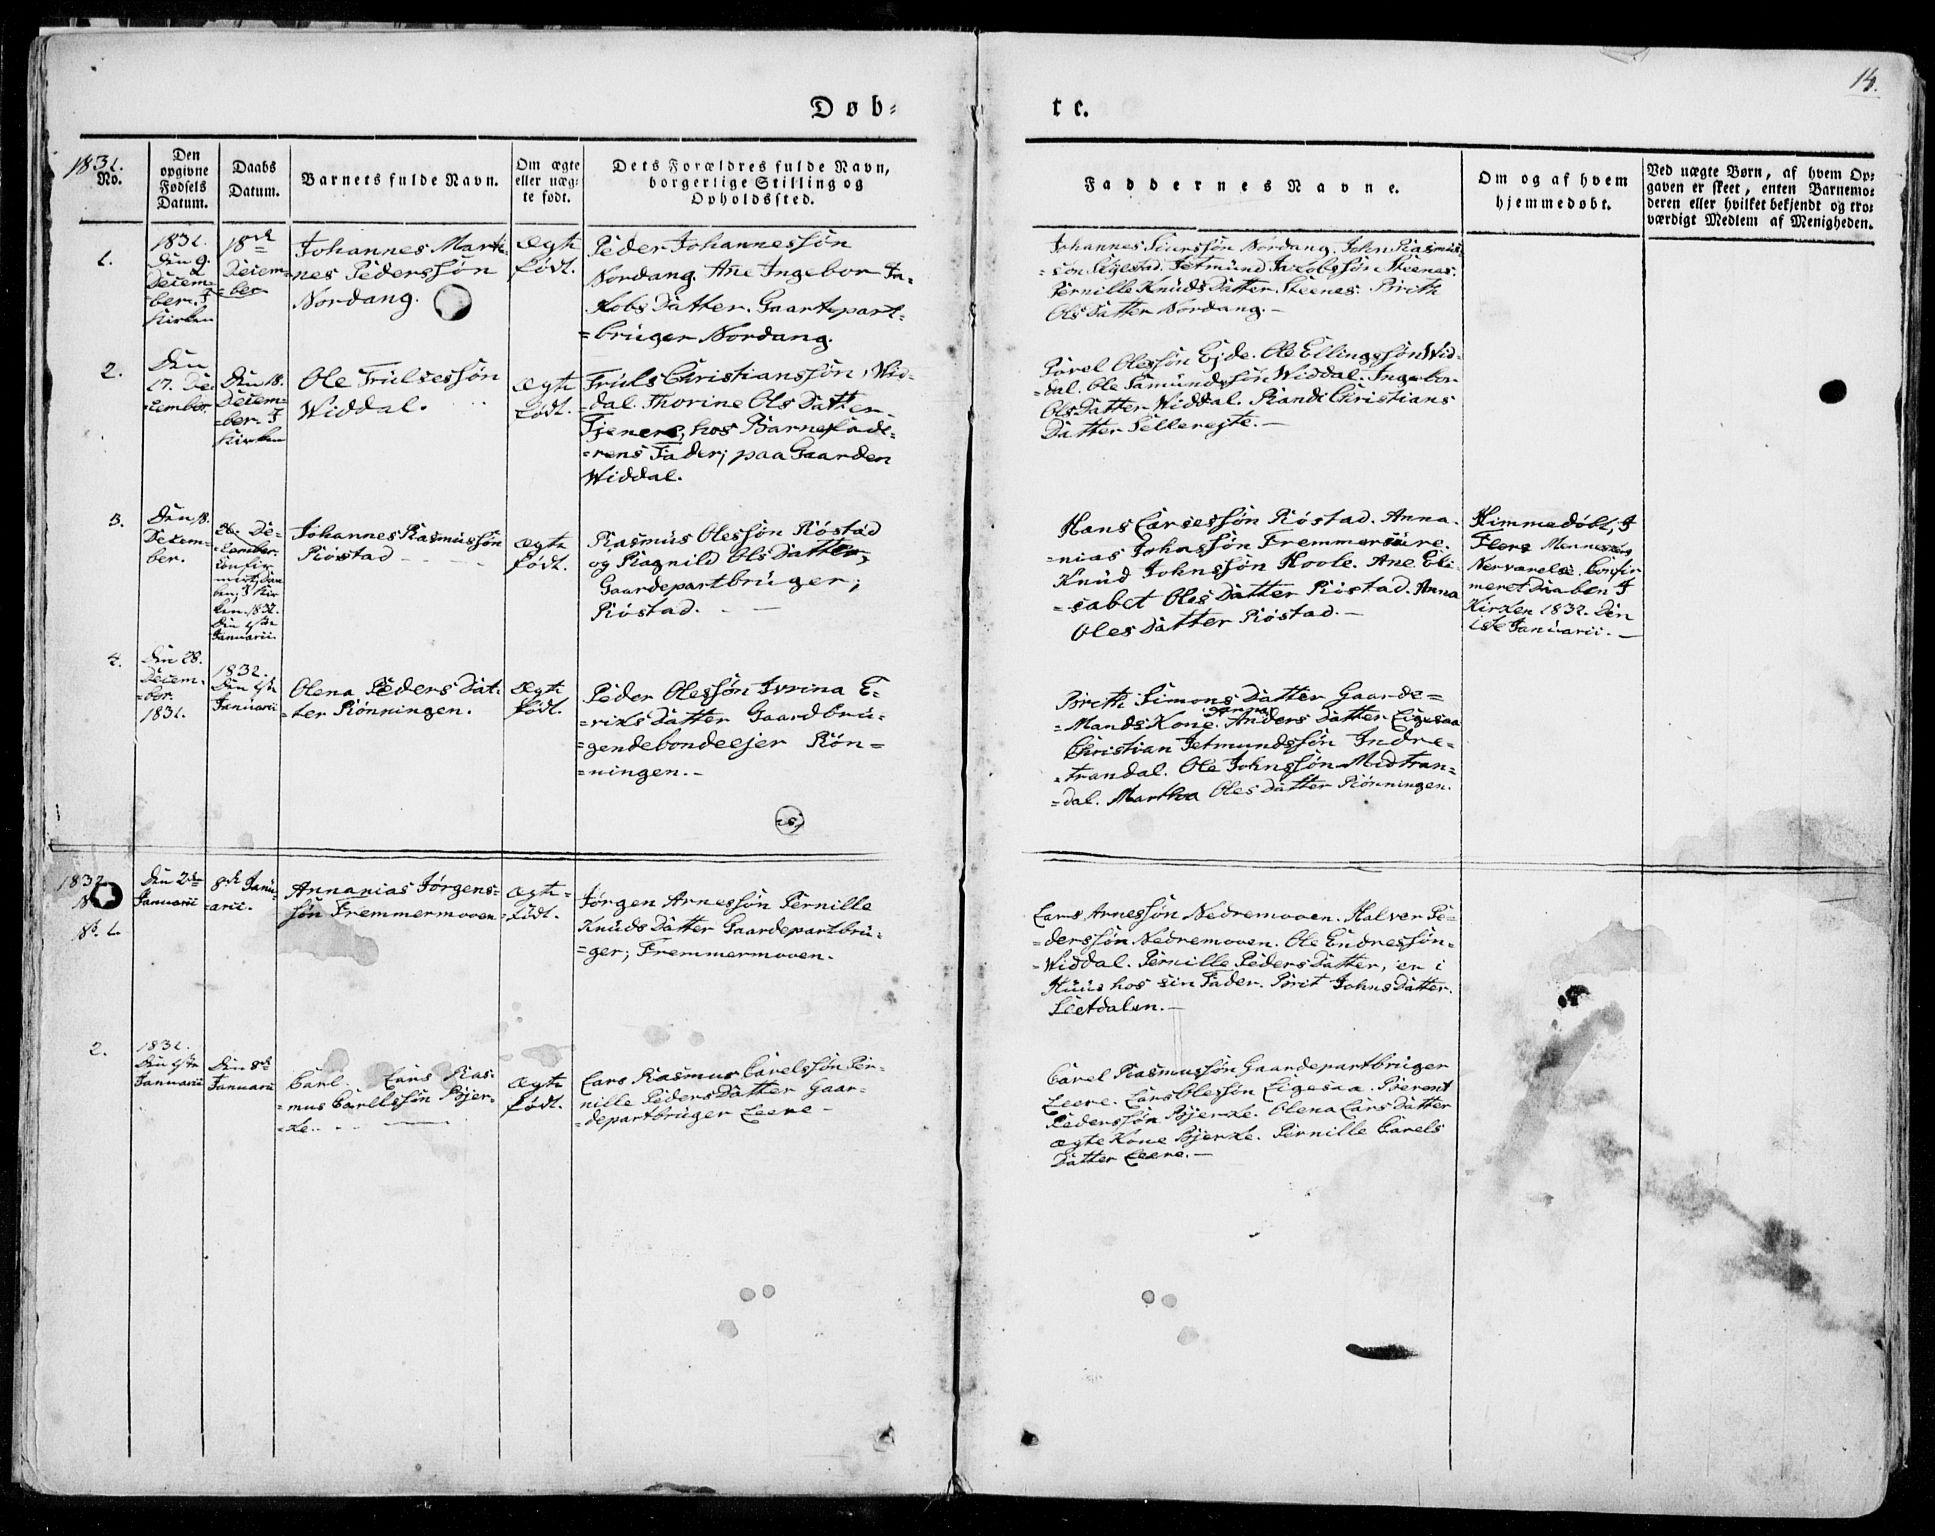 14.
Døb-
te.
1831.
No.
Den
opgivne
Fødsels
Datum.
Daabs
Datum.
Barnets fulde Navn.
Om ægte
eller uæg-
te født.
Dets Forældres fulde Navn,
borgerlige Stilling og
Opholdssted.
Faddernes Navne.
Om og af hvem
hjemmedøbt.
Ved uægte Børn, af hvem Op-
gaven er skeet, enten Barnemo-
deren eller hvilket bekjendt og tro-
værdigt Medlem af Menigheden.
1.
1831.
Din 9.
Decem-
=ber. I
Kirken
18de
Decem=
=ber
Johannes Marti=
nes Pederssøn
Nordang.
Ægte
født.
Peder Johannessøn
Nordang. Ane Ingebor Ja-
kobs Datter. Gaartepart-
=bruger Nordang.
Johannes Nordang. John Rasmus-
=søn. Jetmund Jacobssøn Steenes.
Pernille Knuds Datter. Steenes. Brith
Ols Datter Nordang. —
2.
Din
17. De
=cember.
Din 18.
Decem=
=ber. I
Kirken
Ole Trulsessøn
Widdal.
Ægte
født.
Truls Christianssøn, Wid-
=dal. Thorine Ols Datter.
Tjenere, hos Barnefade-
=rens Fader; paa Gaarden
Widdal.
Olessøn Ejde. Ole Ellingssøn Wid-
dal. Ole Samundssøn Widdal. Ingebor
Ols Datter Widdal. Randi Christians
Datter —
3.
Din 18.
Decem=
ber.
26. De=
=cember.
Confir
Kir
ken. 1832.
Din 1ste
Januarii.
Johannes Rasmussøn
Röstad — —
Ægte
født.
Rasmus Olessøn Röstad
og Ragnild Ols Datter,
Gaardepartbruger;
Röstad. — —
Hans Larsessøn Röstad. Anna-
=nias Johnssøn
Knud Johnssøn Hoole. Ane Eli-
=sabet Oles Datter Röstad. Anna
Oles Datter Röstad. —
Himmedøbt, I
Flere Menneskers
Nervarelse. Confir
meret Daaben I
Kirken 1832. Den
1ste Januarii. —
4.
Din 28.
Decem-
=ber.
1831.
1832.
Din 1ste
Januarii
Olena Peders Dat-
=ter Rönningen.
Ægte
født.
Peder Olessøn Ivrina E-
=riks Datter Gaardbru-
=gendebondeejer Rön=
=ningen. —
Brith Simons Datter Gaarde=
=Mands Kone. Anders Datter Eigesaa
Christian Jetmundssøn Indre=
=trandal. Ole Johnssøn Midtran=
=dal. Martha Oles Datter Rönningen.
1832
No. 1.
Din 2den
Januarii
8de Janu-
=arii.
Annanias Jørgens=
søn Fremmermoven
Ægte
=født.
Jørgen Arnessøn Pernille
Knuds Datter Gaardepartbru-
=ger; Fremmermoven.
Lars Arnessøn Nedremoven. Halver Pe=
=derssøn Nedremoven. Ole Endressøn=
=Widdal. Pernille Peders Datter, er i
Huus hos sin Fader. Brit Johns Datter.
Leetdalen. —
2.
1831.
Din 1ste
Januarii
Din 8de
Januarii
Carl. Lars Ras-
=mus Carllssøn Bjer-
=ke. — —
Ægte
født.
Lars Rasmus Carelssøn Per-
nille Peders Datter Gaar-
=departbruger Leere —
Carel Rasmussøn Gaardepartbruger
Leere. Lars Olessøn Eigesaa. Berent
Pederssøn Bjerke. Olena Lars Datter
ægte Kone Bjerke. Pernille Carels
Datter Leere. —